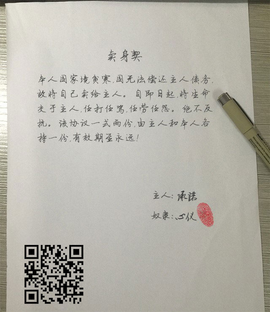 卖身契
本人因家境贫寒,因无法偿还主人债务
故将自己卖给主人。自即日起将生命
交于主人,任打任骂,任劳任怨。绝不反
抗。该协议一式两份,由主人和本人各
持一份,有效期至永远!
主人:承诺
奴隶:心仪